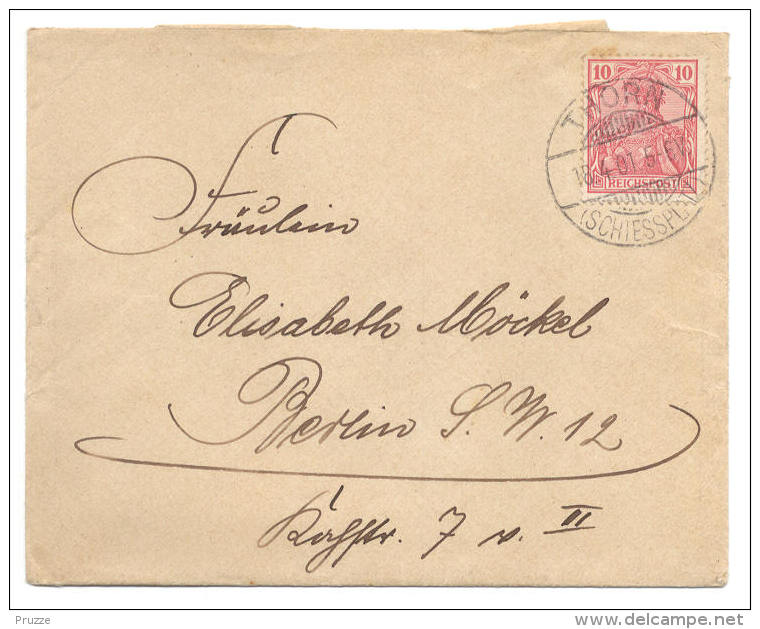 10 10
REICHSPOST
THORN
4 01 5-6
(SCHIESSPL
Fräulein
Elisabeth Möckel
Berlin S. W. 12
7 v. II
Pruzze
www.delcampe.net